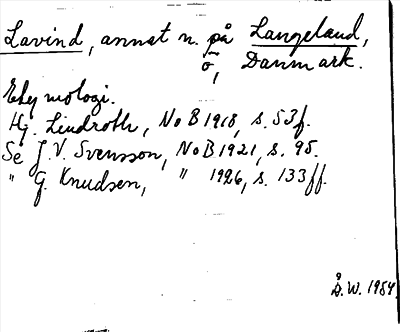 Lavind, annat n. på Langeland,
ö, Danmark.
Etymologi.
Hj. Lindroth, NoB 1918, s. 53f.
Se J.V. Svensson, NoB 1921, s. 95.
" G. Knudsen, " 1926, s. 133ff.
Å.W. 1984.